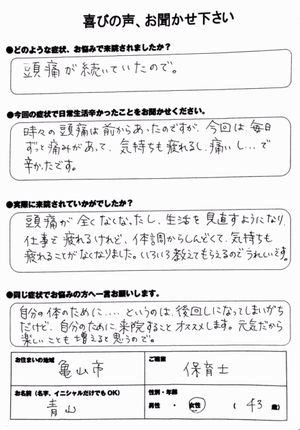 喜びの声、お聞かせ下さい
●どのような症状、お悩みで来院されましたか？
頭痛が続いていたので。
●今回の症状で日常生活辛かったことをお聞かせください。
時々の頭痛は前からあったのですが、今回は毎日
ずっと痛みがあって、気持ちも疲れるし、痛いし…で
辛かったです。
●実際に来院されていかがでしたか？
頭痛が全くなくなったし、生活を見直すようになり、
仕事で疲れるけれど、体調からしんどくて、気持ちも
疲れることがなくなりました。いろいろ教えてもらえるのでうれしいです。
●同じ症状でお悩みの方へ一言お願いします。
自分の体のために…というのは、後回しになってしまいがち
だけど、自分のために来院することオススメします。元気だから
楽しいことも増えると思うので。
お住まいの地域
亀山市
ご職業
保育士
お名前（名字、イニシャルだけでもOK）
青山
性別・年齢
男性 ・ 女性 （ 43 歳）